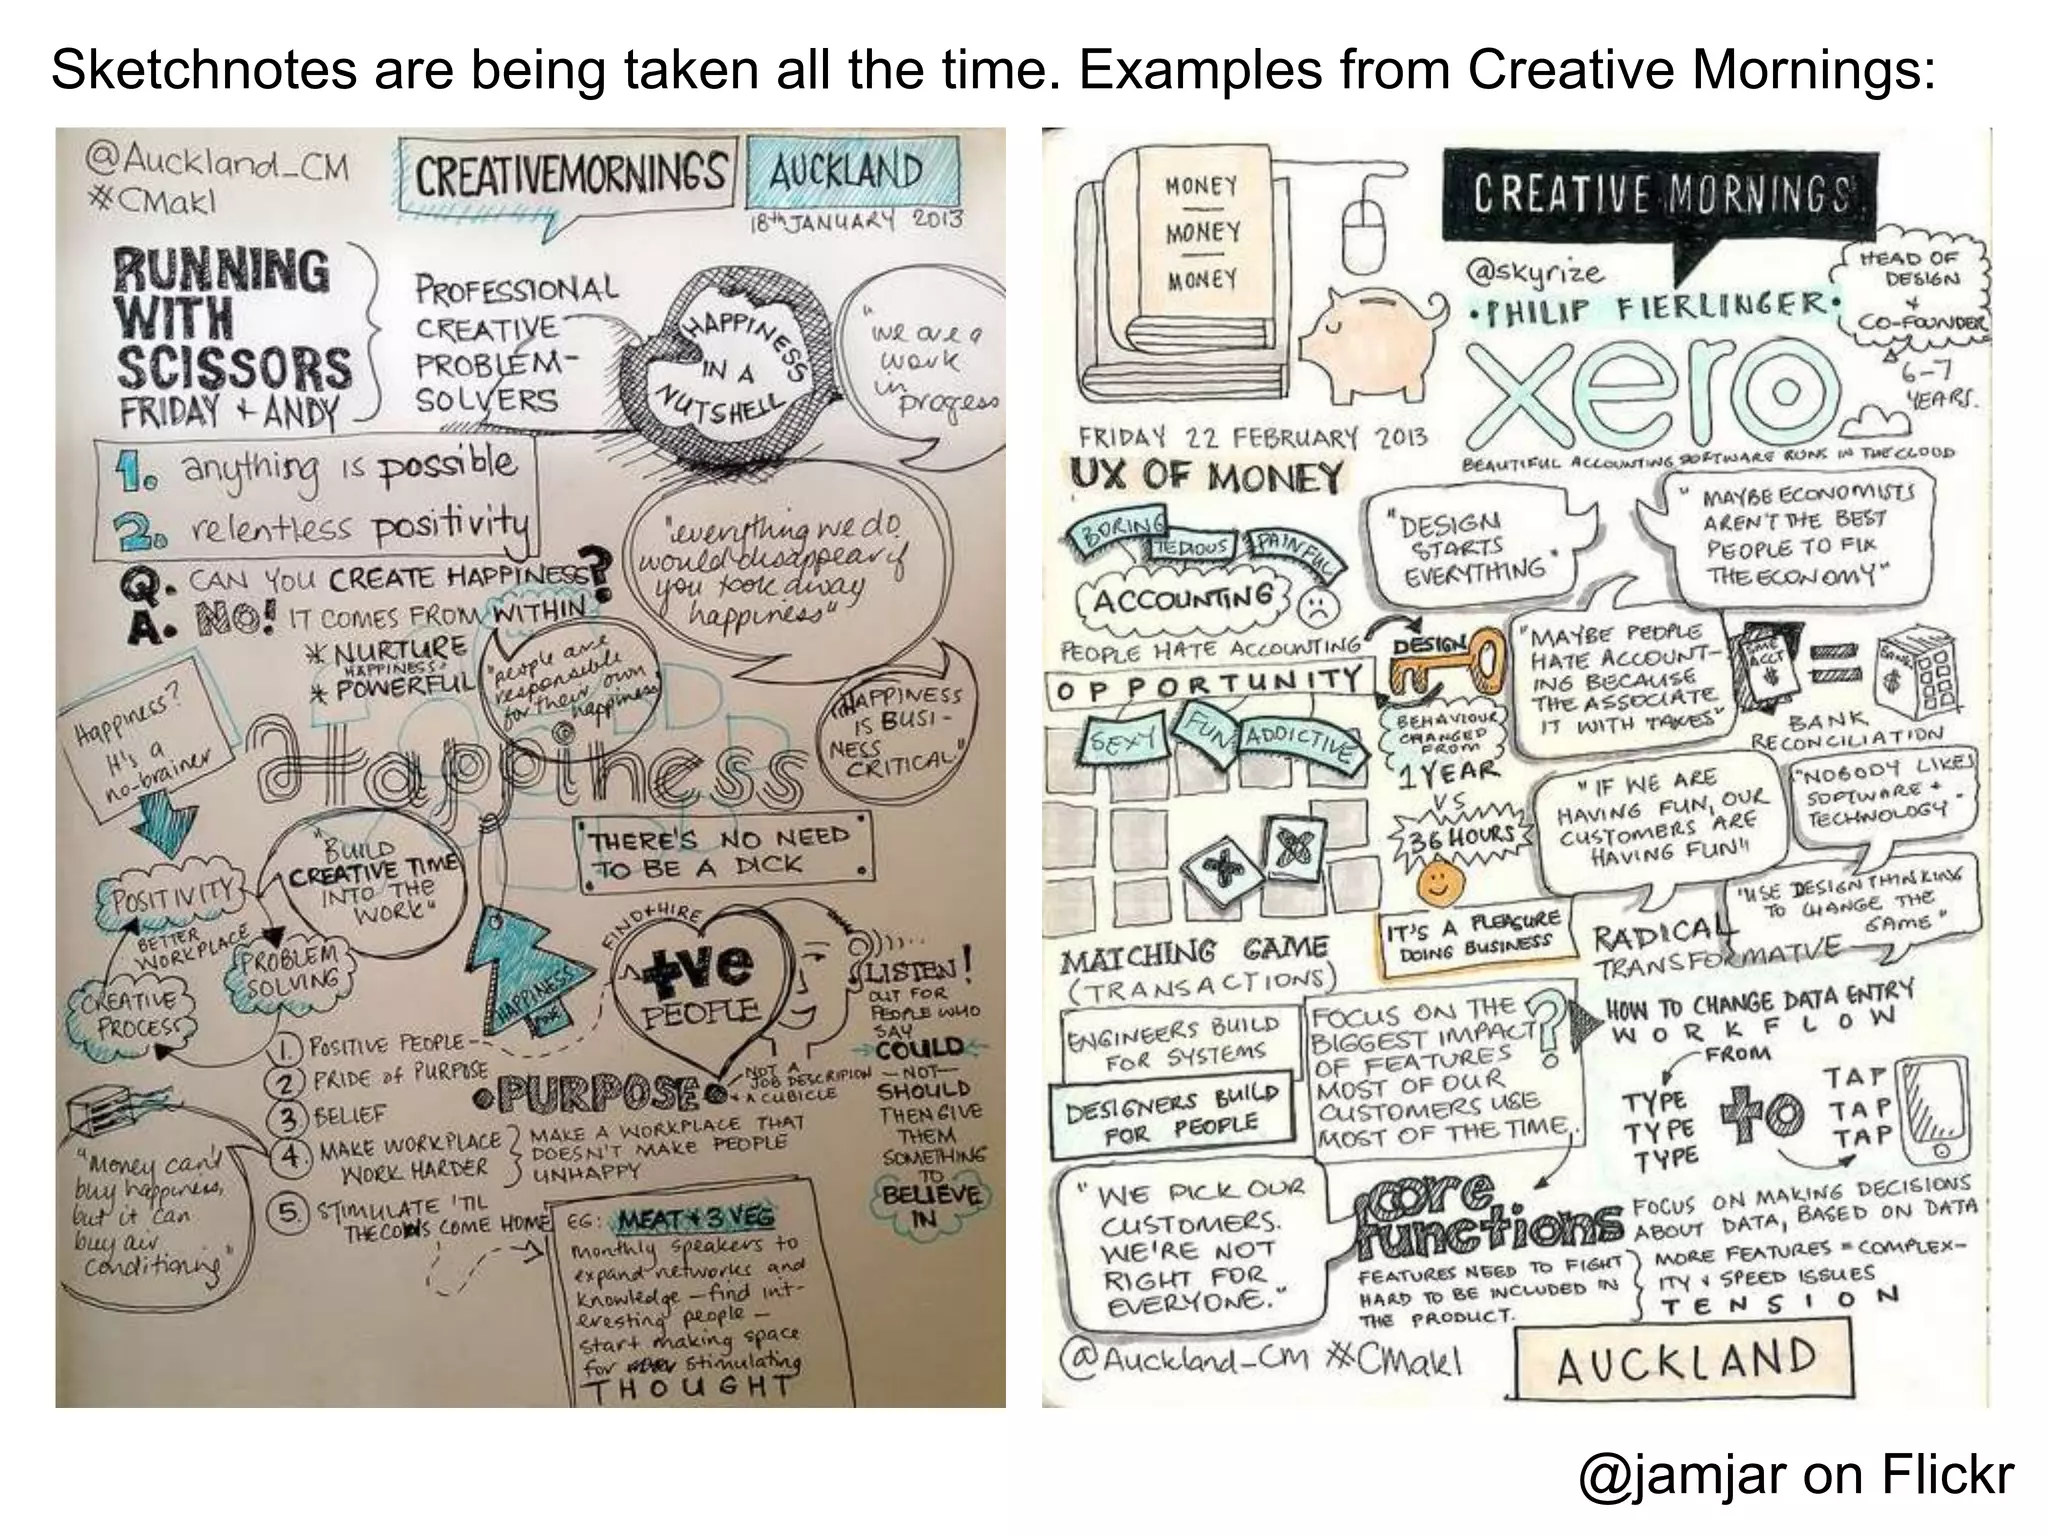 Sketchnotes are being taken all the time. Examples from Creative Mornings:
@Auckland_CM
#CMakl
CREATIVEMORNINGS
AUCKLAND
18th JANUARY 2013
RUNNING
WITH
SCISSORS
FRIDAY + ANDY
PROFESSIONAL
CREATIVE
PROBLEM-
SOLVERS
HAPPINESS
IN A
NUTSHELL
"we are a
work
in
progess
1. anything is possible
2. relentless positivity
"everything we do
would disappear if
you took away
happiness"
Q. CAN YOU CREATE HAPPINESS?
A. NO! IT COMES FROM WITHIN
* NURTURE
HAPPINESS
* POWERFUL
"people are
responsible
for their own
happiness
HAPPINESS
IS BUSI-
NESS
CRITICAL."
Happiness?
It's a
no-brainer
Happiness
"BUILD
CREATIVE TIME
INTO THE
WORK"
THERE'S NO NEED
TO BE A DICK
POSITIVITY
BETTER
WORKPLACE
PROBLEM
SOLVING
CREATIVE
PROCESS
HAPPINESS
FIND + HIRE
+ve
PEOPLE
LISTEN!
OUT FOR
PEOPLE WHO
SAY
COULD
-NOT-
SHOULD
THEN GIVE
THEM
SOMETHING
TO
BELIEVE
IN
1. POSITIVE PEOPLE-
2 PRIDE of PURPOSE
3 BELIEF
4. MAKE WORKPLACE
WORK HARDER
5. STIMULATE 'TIL
THE COWS COME HOME
PURPOSE
NOT A
JOB DESCRIPION
+ A CUBICLE
MAKE A WORKPLACE THAT
DOESN'T MAKE PEOPLE
UNHAPPY
"Money can't
buy happiness,
but it can
buy air
conditioning"
EG: MEAT + 3 VEG
monthly speakers to
expand networks and
knowledge - find int-
eresting people -
start making space
for stimulating
THOUGHT
MONEY
MONEY
MONEY
CREATIVE MORNINGS
@skyrize
• PHILIP FIERLINGER •
HEAD OF
DESIGN
+
CO-FOUNDER
6-7
YEARS.
xero
BEAUTIFUL ACCOUNTING SOFTWARE RUNS IN THE CLOUD
FRIDAY 22 FEBRUARY 2013
UX OF MONEY
BORING
TEDIOUS
PAINFUL
ACCOUNTING
PEOPLE HATE ACCOUNTING
"DESIGN
STARTS
EVERYTHING"
" MAYBE ECONOMISTS
AREN'T THE BEST
PEOPLE TO FIX
THE ECONOMY"
DESIGN
OPPORTUNITY
SEXY
FUN
ADDICTIVE
BEHAVIOUR
CHANGED
FROM
1 YEAR
VS
36 HOURS
"MAYBE PEOPLE
HATE ACCOUNT-
ING BECAUSE
THE ASSOCIATE
IT WITH TAXES"
SME
ACCT
$
=
BANK
$
BANK
RECONCILIATION
" IF WE ARE
HAVING FUN, OUR
CUSTOMERS ARE
HAVING FUN"
"NOBODY LIKES
SOFTWARE +
TECHNOLOGY"
"USE DESIGN THINKING
TO CHANGE THE
GAME"
IT'S A PLEASURE
DOING BUSINESS
RADICAL
TRANSFORMATIVE
MATCHING GAME
(TRANSACTIONS)
ENGINEERS BUILD
FOR SYSTEMS
DESIGNERS BUILD
FOR PEOPLE
FOCUS ON THE
BIGGEST IMPACT
OF FEATURES
MOST OF OUR
CUSTOMERS USE
MOST OF THE TIME.
?
HOW TO CHANGE DATA ENTRY
WORKFLOW
FROM
TYPE
TYPE
TYPE
to
TAP
TAP
TAP
"WE PICK OUR
CUSTOMERS.
WE'RE NOT
RIGHT FOR
EVERYONE."
core
functions
FEATURES NEED TO FIGHT
HARD TO BE INCLUDED IN
THE PRODUCT.
FOCUS ON MAKING DECISIONS
ABOUT DATA, BASED ON DATA
MORE FEATURES = COMPLEX-
ITY + SPEED ISSUES
TENSION
@Auckland_CM #CMakl
AUCKLAND
@jamjar on Flickr